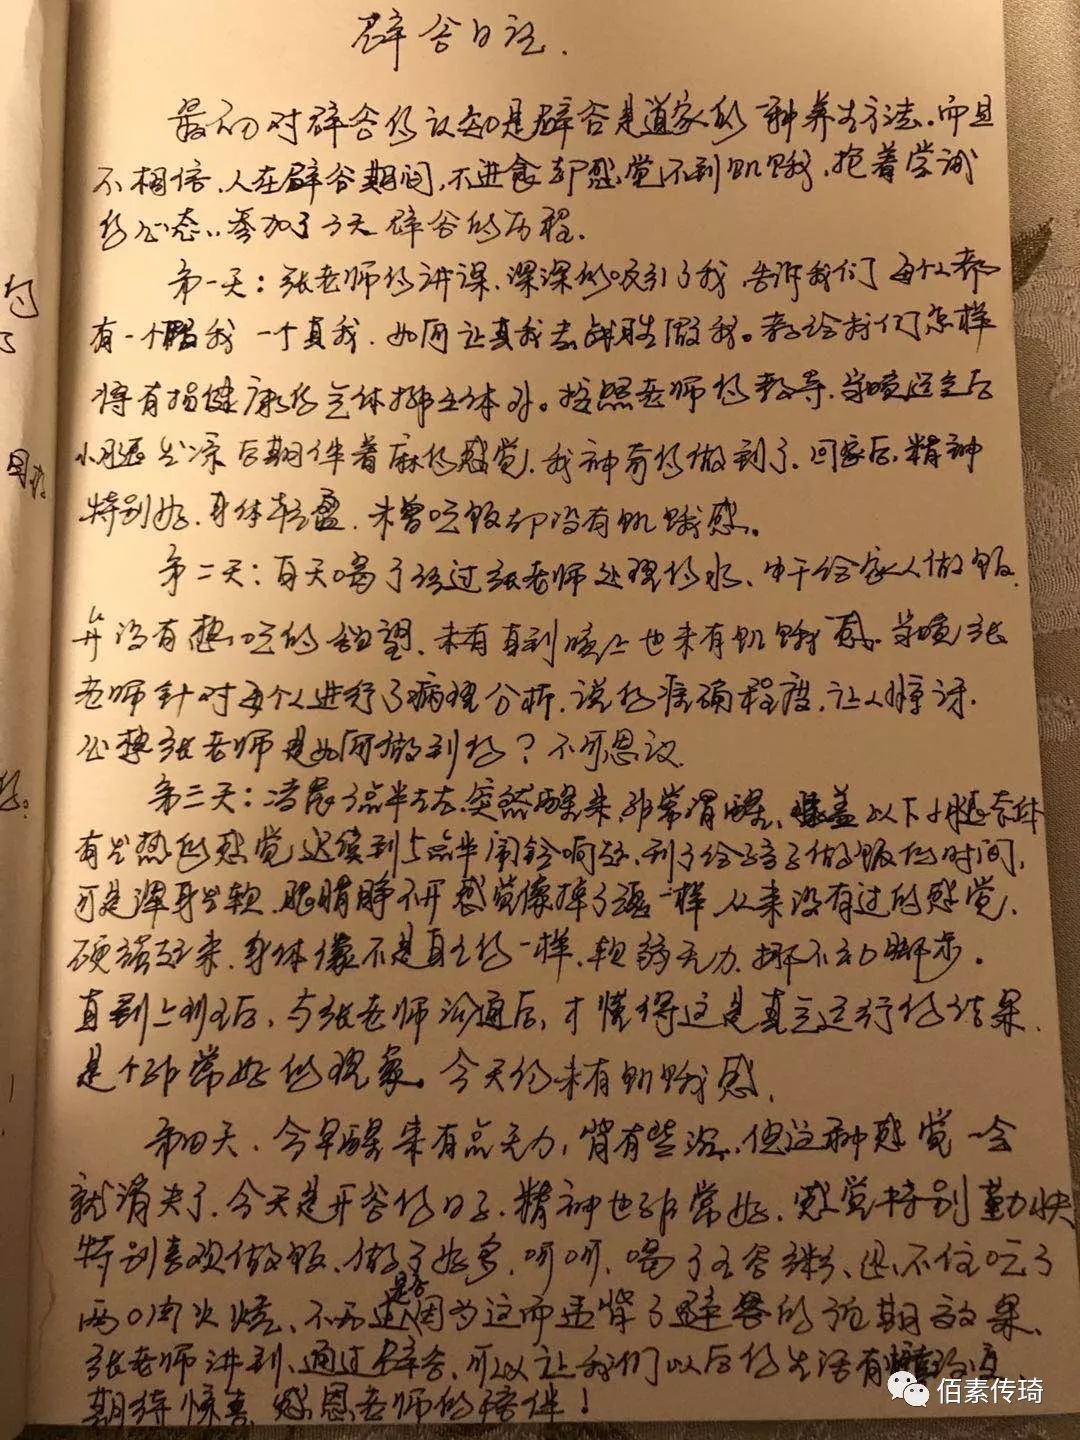 辟谷日记.
最初对辟谷的认知是辟谷是道家的一种养生方法.而且
不相信,人在辟谷期间,不进食却感觉不到饥饿,抱着尝试
的心态,参加了3天辟谷的历程.
第一天:张老师的讲课,深深的吸引了我,告诉我们每个人都
有一个假我一个真我.如何让真我去战胜假我。教给我们怎样
将有损健康的气体排出体外。按照老师的教导,当晚
小腿发凉后期伴着麻的感觉,我神奇的做到了,回家后,精神
特别好.身体轻盈,未曾吃饭却没有饥饿感。
第二天:白天喝了经过张老师处理的水、中午给家人做饭
并没有想吃的欲望,直到晚上也未有饥饿感.当晚张
老师针对每个人进行了病理分析.说的准确程度,让人惊讶.
心想张老师是如何做到的?不可思议
第三天:凌晨3点半左右,突然醒来,非常清醒、膝盖以下小腿
有发热的感觉延续到5点半闹铃响起,到了给孩子做饭的时间,
可是浑身发软.眼睛睁不开感觉像掉了魂一样从来没有过的感觉,
硬撑起来,身体像不是自己的一样,软弱无力.挪不动脚步。
直到上班后,与张老师沟通后,才懂得这是真气运行的结果
是个非常好的现象。今天仍未有饥饿感.
第四天.今早醒来有点无力,背有些沉.但这种感觉一会
就消失了.今天是开谷的日子.精神也非常好.感觉特别勤快
特别喜欢做饭、做了好多,呵呵,喝了五谷粥、还不住吃了
两口肉火烧、不知道是否因为这而违背了辟谷的预期效果、
张老师讲到、通过辟谷,可以让我们以后的生活有
期待惊喜 感恩老师的陪伴!
的
了
佰素传琦